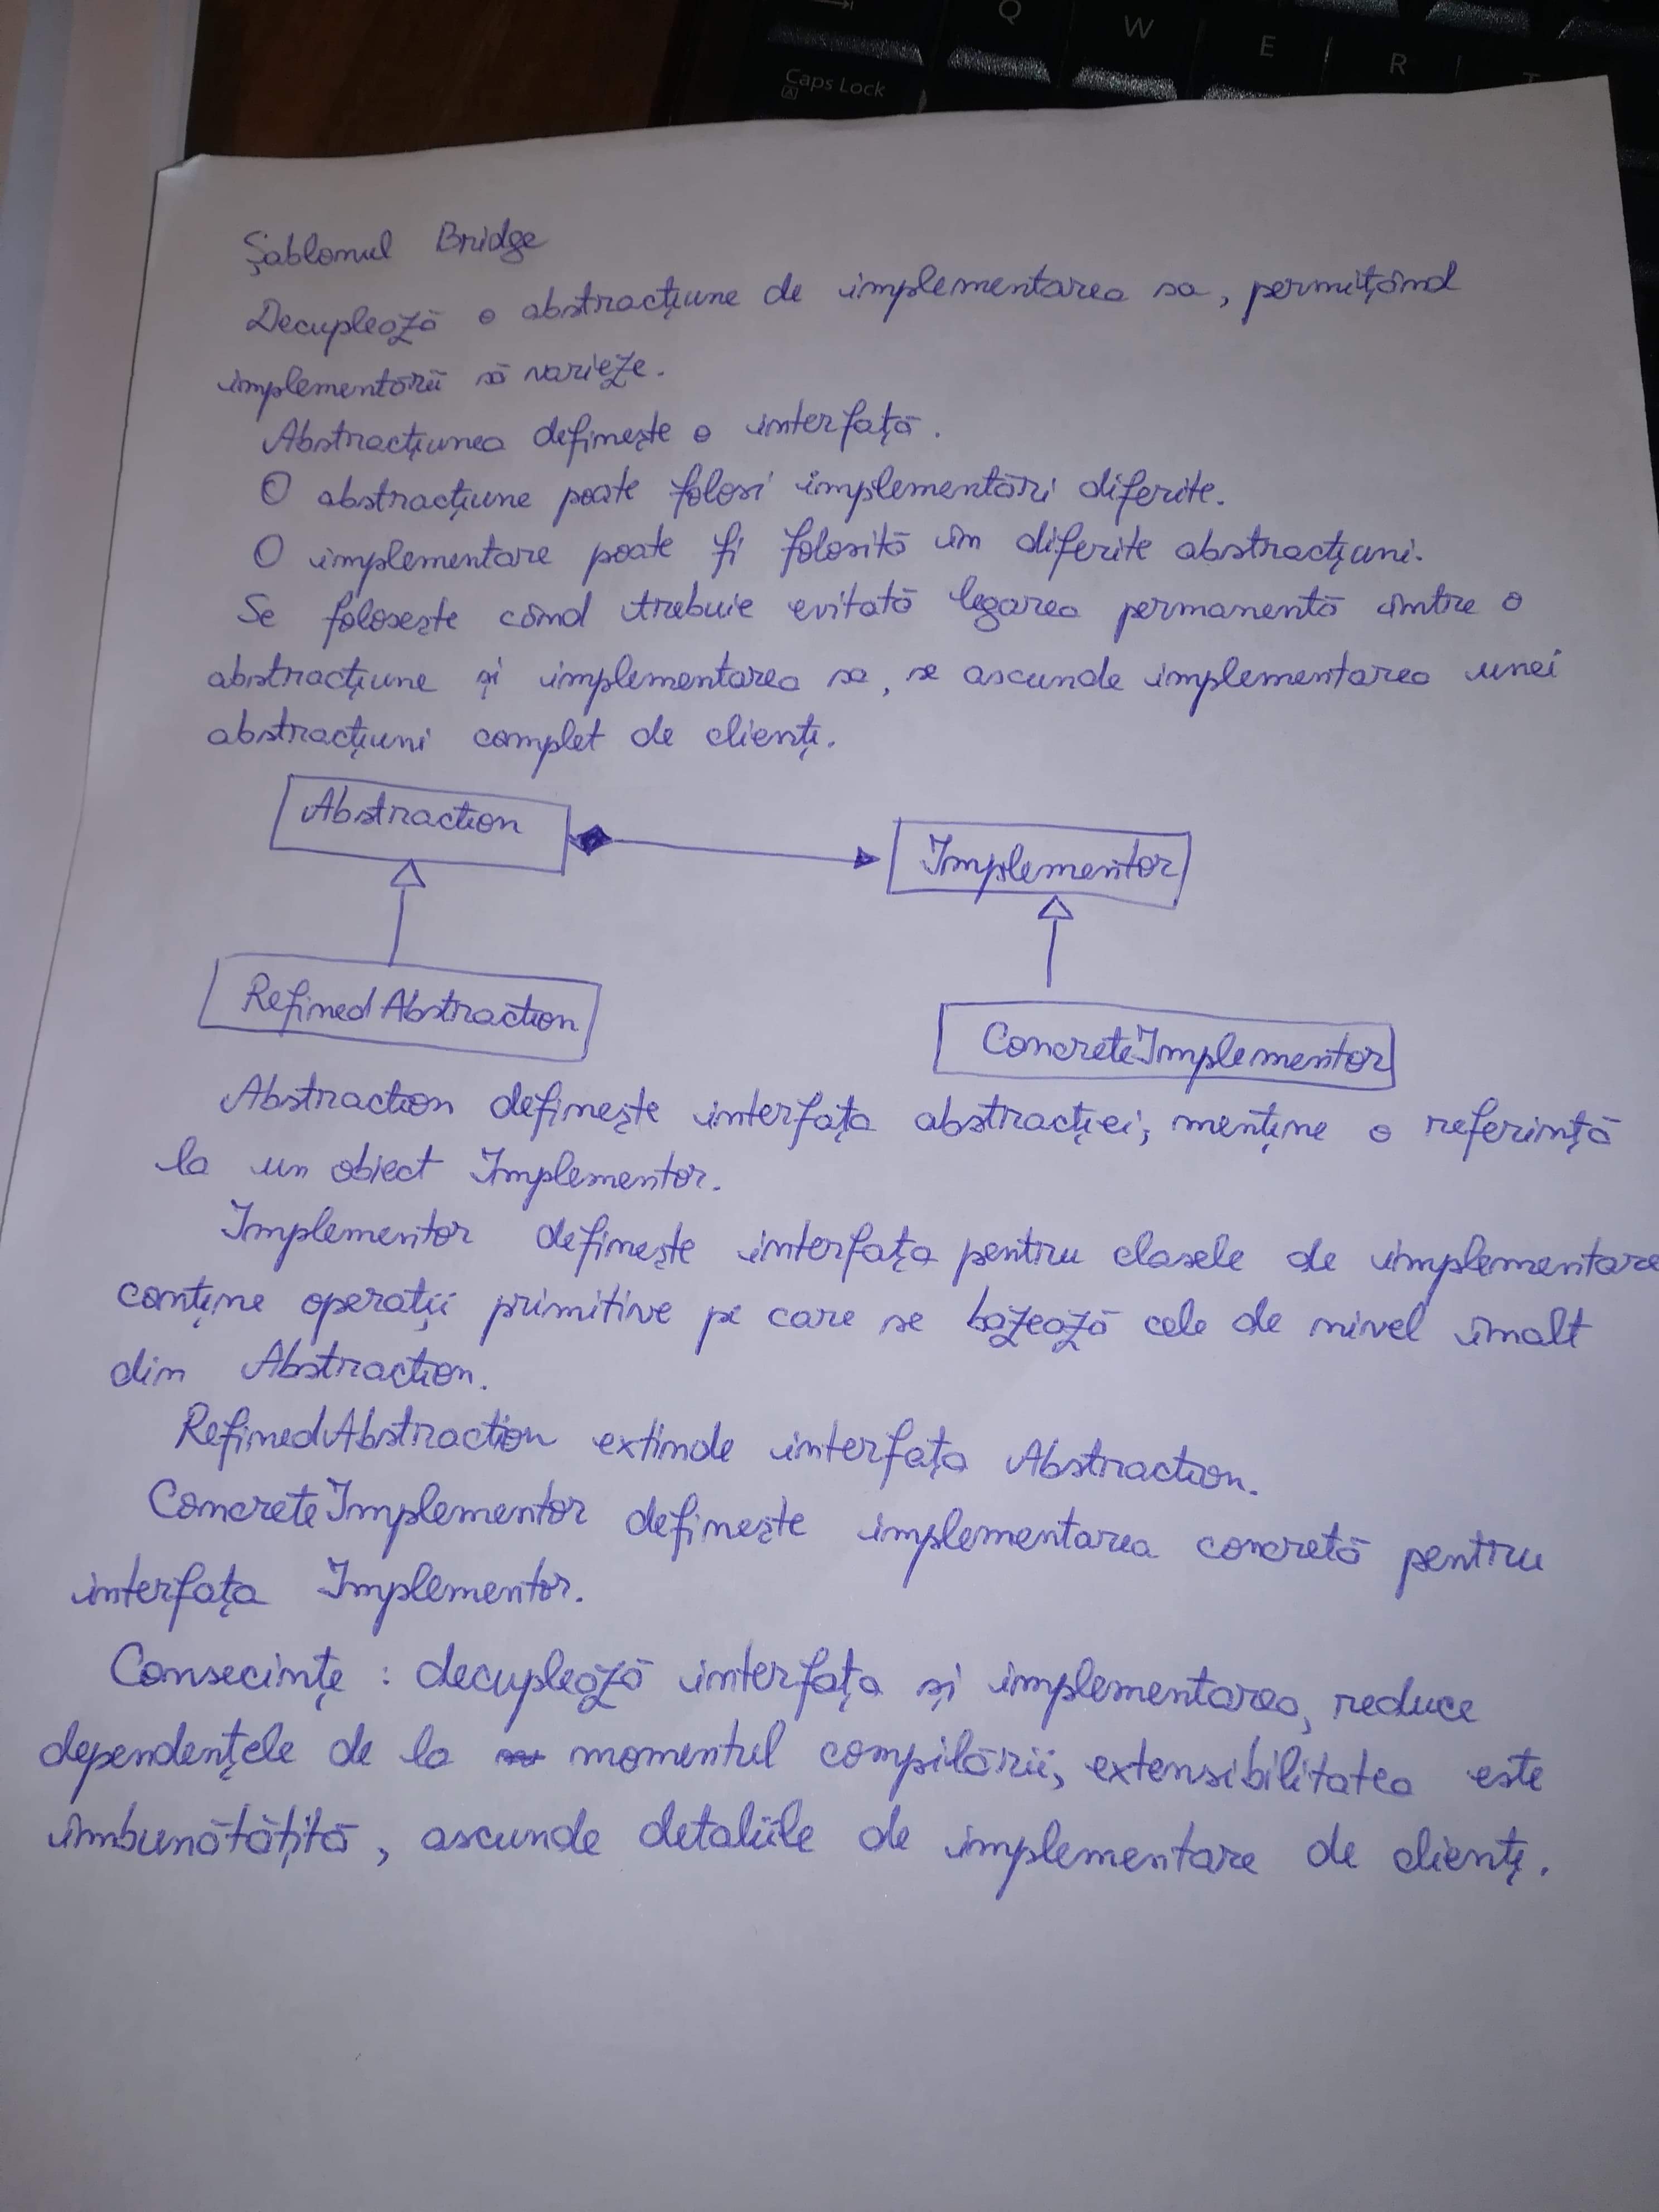 Q W E R T
Caps Lock
A
Șablonul Bridge
Decuplează o abstracțiune de implementarea sa, permițând
implementării să varieze.
Abstracțiunea definește o interfață.
O abstracțiune poate folosi implementări diferite.
O implementare poate fi folosită în diferite abstracțiuni.
Se folosește când trebuie evitată legarea permanentă între o
abstracțiune și implementarea sa, se ascunde implementarea unei
abstracțiuni complet de clienți.
Abstraction
Implementor
RefinedAbstraction
ConcreteImplementor
Abstraction definește interfața abstracției, menține o referință
la un obiect Implementor.
Implementor definește interfața pentru clasele de implementare
conține operații primitive pe care se bazează cele de nivel înalt
din Abstraction.
RefinedAbstraction extinde interfața Abstraction.
ConcreteImplementor definește implementarea concretă pentru
interfața Implementor.
Consecințe : decuplează interfața și implementarea, reduce
dependențele de la momentul compilării, extensibilitatea este
îmbunătățită, ascunde detaliile de implementare de clienți.